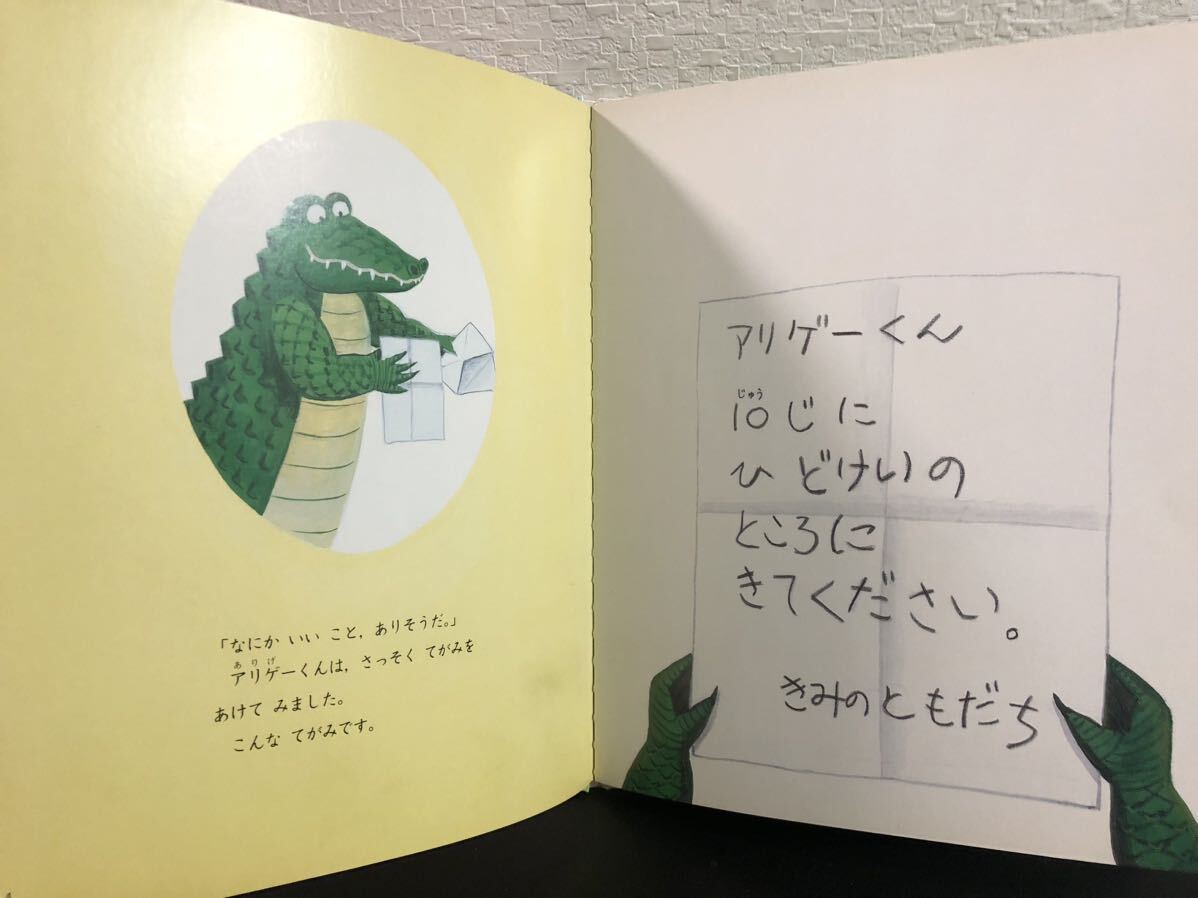 「なにか いい こと、ありそうだ。」
ありげ
アリゲーくんは、さっそく てがみを
あけて みました。
こんな てがみです。
アリゲーくん
じゅう
10じに
ひどけいの
ところに
きてください。
きみのともだち